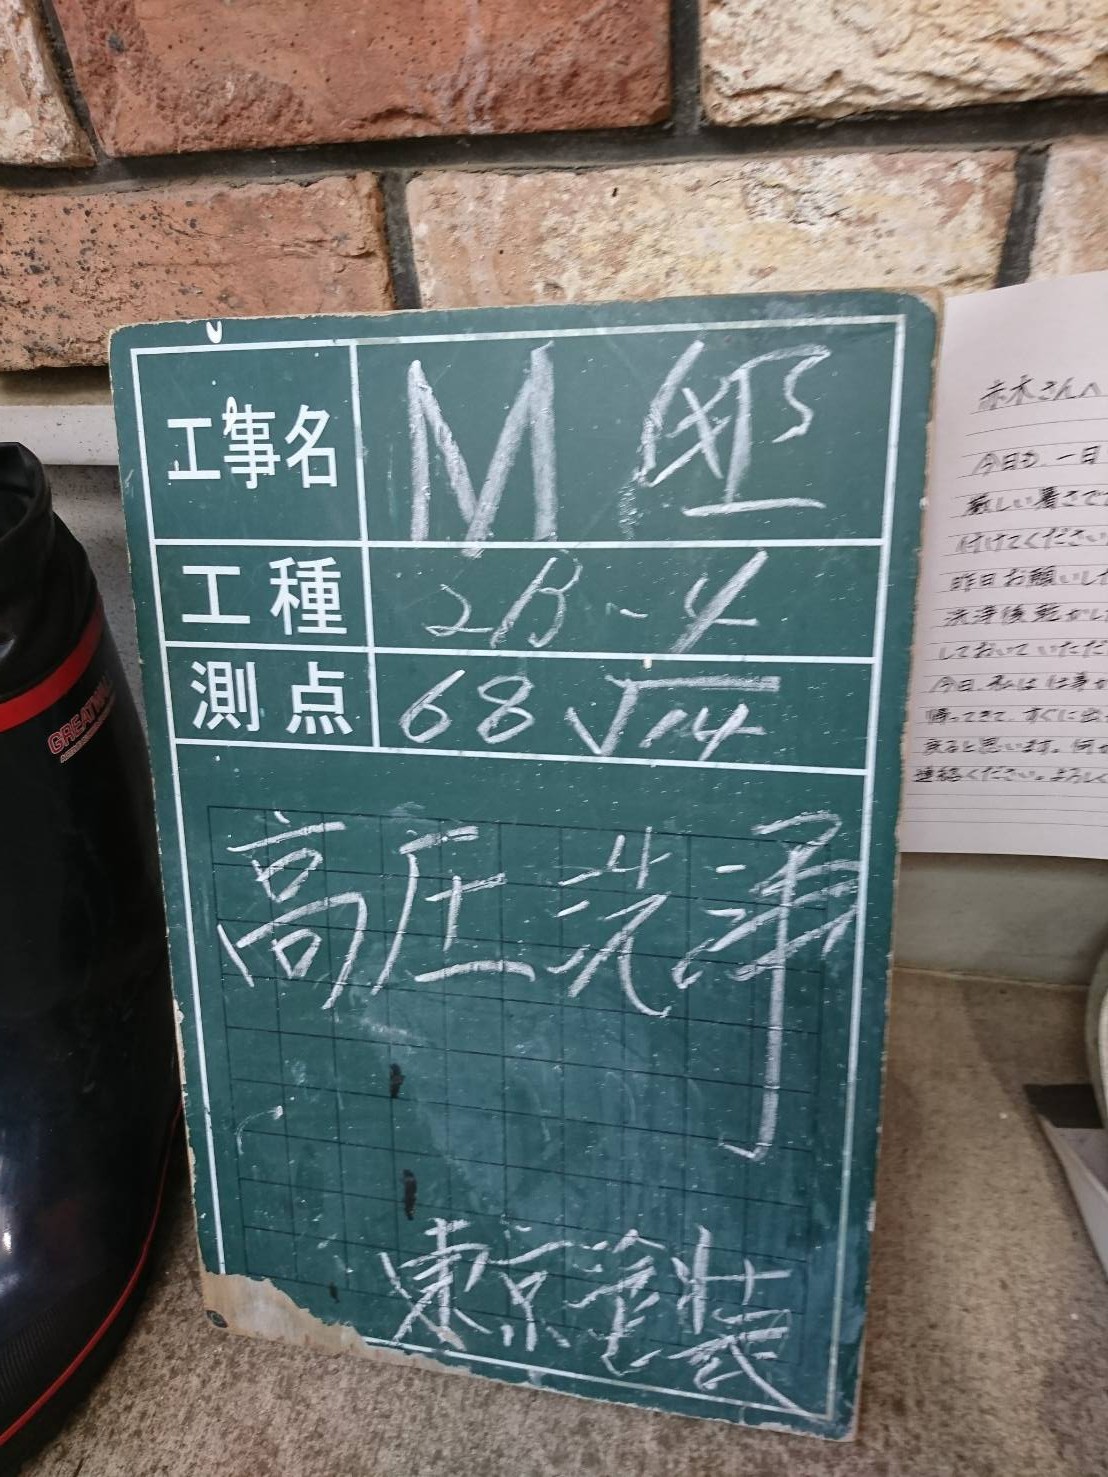 工事名 M 邸
工種 2B-4
測点 68 √14
高圧洗浄
東京塗装
赤木さんへ
今日も、一日
厳しい暑さで
付けてください
昨日お願いした
洗浄後乾かし
しておいていただ
今日、私は仕事か
帰ってきて、すぐに出
戻ると思います。何か
連絡ください。よろしく
GREAT